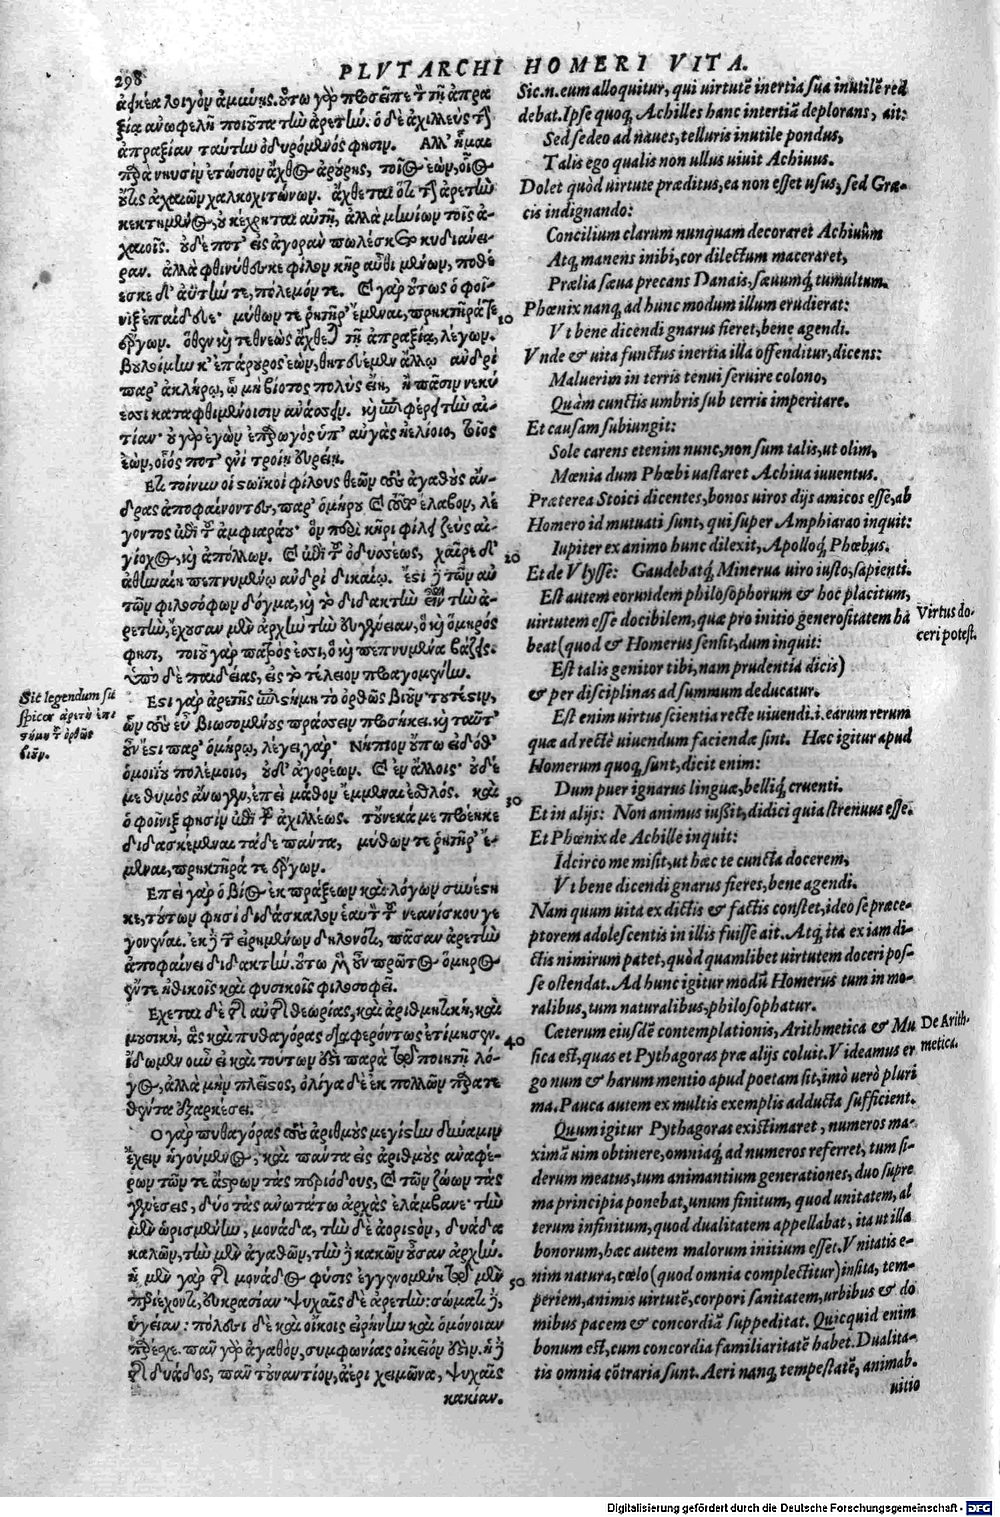 298
PLVTARCHI HOMERI VITA.
ἀεικέα λοιγὸν ἀμύνῃς. οὕτω γὰρ προσεῖπε τῇ ἀπρα
ξίᾳ ἀνωφελῆ ποιοῦντα τὴν ἀρετήν· ὁ δὲ ἀχιλλεὺς τὴν
ἀπραξίαν ταύτην ὀδυρόμενός φησιν. Ἀλλ' ἧμαι
παρὰ νηυσὶν ἐτώσιον ἄχθος ἀρούρης, τοῖος ἐὼν, οἷος
οὔτις ἀχαιῶν χαλκοχιτώνων. ἄχθεται ὅτι τὴν ἀρετὴν
κεκτημένος, οὐ κέχρηται αὐτῇ, ἀλλὰ μηνίων τοῖς ἀ-
χαιοῖς. οὐδέ ποτ' εἰς ἀγορὰν πωλέσκετο κυδιάνει-
ραν. ἀλλὰ φθινύθεσκε φίλον κῆρ αὖθι μένων, ποθέ
εσκε δ' ἀϋτήν τε, πόλεμόν τε. καὶ γὰρ οὕτως ὁ φοῖ-
νιξ ἐπαίδευε· μύθων τε ῥητῆρ' ἔμεναι, πρηκτῆρά τε
ἔργων. ὅθεν καὶ τεθνεὼς ἄχθεται τῇ ἀπραξίᾳ, λέγων.
Βουλοίμην κ' ἐπάρουρος ἐὼν, θητευέμεν ἄλλῳ ἀνδρὶ
παρ' ἀκλήρῳ, ᾧ μὴ βίοτος πολὺς εἴη, ἢ πᾶσιν νεκύ
εσσι καταφθιμένοισιν ἀνάσσειν. καὶ ἐπιφέρει τὴν αἰ-
τίαν· οὐ γὰρ ἐγὼν ἐπαρωγὸς ὑπ' αὐγὰς ἠελίοιο, τοῖος
ἐὼν, οἷός ποτ' ἐνὶ τροίῃ εὐρείῃ.
Ἔτι τοίνυν οἱ στωϊκοὶ φίλους θεῶν τοὺς ἀγαθοὺς ἄν-
δρας ἀποφαίνοντες, παρ' ὁμήρου καὶ τοῦτο ἔλαβον, λέ
γοντος ἐπὶ τοῦ ἀμφιαράου· ὃν περὶ κῆρι φίλει ζεύς αἰ-
γίοχος, καὶ ἀπόλλων. καὶ ἐπὶ τοῦ ὀδυσσέως, χαῖρε δ'
ἀθηναίη πεπνυμένῳ ἀνδρὶ δικαίῳ. ἔστι δὲ τῶν αὐ
τῶν φιλοσόφων δόγμα, καὶ τὸ διδακτὴν εἶναι τὴν ἀ-
ρετὴν, ἔχουσαν μὲν ἀρχὴν τὴν εὐγένειαν, ὃ καὶ ὅμηρός
φησι, τοίου γὰρ πατρὸς ἐσσι, ὃ καὶ πεπνυμένα βάζεις.
ὑπὸ δὲ παιδείας, εἰς τὸ τέλειον προαγομένην.
Ἔστι γὰρ ἀρετῆς ἐπιστήμη τὸ ὀρθῶς βιοῦν· τουτέστιν,
ὧν τοὺς εὖ βιωσομένους πράσσειν προσήκει. καὶ ταῦτ'
οὖν ἔστι παρ' ὁμήρῳ, λέγει γάρ· Νήπιον οὔπω εἰδόθ'
ὁμοιΐου πολέμοιο, οὐδ' ἀγορέων. καὶ ἐν ἄλλοις· οὐδέ
με θυμὸς ἄνωγεν, ἐπεὶ μάθον ἔμμεναι ἐσθλός. καὶ
ὁ φοῖνιξ φησὶν ἐπὶ τοῦ ἀχιλλέως. τοὔνεκά με προέηκε
διδασκέμεναι τάδε πάντα, μύθων τε ῥητῆρ' ἔ-
μεναι, πρηκτῆρά τε ἔργων.
Ἐπεὶ γὰρ ὁ βίος ἐκ πράξεων καὶ λόγων συνέστη
κε, τούτων φησὶ διδάσκαλον ἑαυτὸν τοῦ νεανίσκου γε
γονέναι. ἐκ δὲ τῶν εἰρημένων δηλονότι, πᾶσαν ἀρετὴν
ἀποφαίνει διδακτὴν. οὕτω μὲν οὖν πρῶτος ὅμηρος
ἔν τε ἠθικοῖς καὶ φυσικοῖς φιλοσοφεῖ.
Ἔχεται δὲ τῆς αὐτῆς θεωρίας, καὶ ἀριθμητικὴ, καὶ
μουσικὴ, ἃς καὶ πυθαγόρας διαφερόντως ἐτίμησεν.
ἴδωμεν οὖν εἰ καὶ τούτων ἐστὶ παρὰ τῷ ποιητῇ λό-
γος, ἀλλὰ μὴν πλεῖστος, ὀλίγα δὲ ἐκ πολλῶν παρατε
θέντα ἐξαρκέσει.
Ὁ γὰρ πυθαγόρας τοὺς ἀριθμοὺς μεγίστην δύναμιν
ἔχειν ἡγούμενος, καὶ πάντα εἰς ἀριθμοὺς ἀναφέ-
ρων τῶν τε ἄστρων τὰς περιόδους, καὶ τῶν ζώων τὰς
γενέσεις, δύο τὰς ἀνωτάτω ἀρχὰς ἐλάμβανε· τὴν
μὲν ὡρισμένην, μονάδα, τὴν δὲ ἀόριστον, δυάδα
καλῶν, τὴν μὲν ἀγαθῶν, τὴν δὲ κακῶν οὖσαν ἀρχήν.
ἡ μὲν γὰρ τῆς μονάδος φύσις ἐγγενομένη τῷ μὲν
περιέχοντι, εὐκρασίαν· ψυχαῖς δὲ ἀρετήν: σώμασι δὲ,
ὑγείαν: πόλεσι δὲ καὶ οἴκοις εἰρήνην καὶ ὁμόνοιαν
παρέσχε. πᾶν γὰρ ἀγαθὸν, συμφωνίας οἰκεῖόν ἐστιν. ἡ δὲ
τῆς δυάδος, πᾶν τοὐναντίον, ἀέρι χειμῶνα, ψυχαῖς
κακίαν.
Sic legendum su
spicor ἀρετὴ ἐπι
στήμη τοῦ ὀρθῶς
βιοῦν.
10
20
30
40
50
Sic.n.eum alloquitur, qui uirtutē inertia sua inutilē red
debat. Ipse quoq; Achilles hanc intertiā deplorans, ait:
Sed sedeo ad naues, telluris inutile pondus,
Talis ego qualis non ullus uiuit Achiuus.
Dolet quòd uirtute præditus, ea non esset usus, sed Græ-
cis indignando:
Concilium clarum nunquam decoraret Achiuûm
Atq; manens inibi, cor dilectum maceraret,
Prælia sæua precans Danais, sæuumq́; tumultum.
Phœnix nanq; ad hunc modum illum erudierat:
Vt bene dicendi gnarus fieret, bene agendi.
Vnde & uita functus inertia illa offenditur, dicens:
Maluerim in terris tenui seruire colono,
Quàm cunctis umbris sub terris imperitare.
Et causam subiungit:
Sole carens etenim nunc, non sum talis, ut olim,
Mœnia dum Phœbi uastaret Achiua iuuentus.
Præterea Stoici dicentes, bonos uiros dijs amicos esse, ab
Homero id mutuati sunt, qui super Amphiarao inquit:
Iupiter ex animo hunc dilexit, Apolloq́; Phœbus.
Et de Vlysse: Gaudebatq́; Minerua uiro iusto, sapienti.
Est autem eorundem philosophorum & hoc placitum,
uirtutem esse docibilem, quæ pro initio generositatem ha
beat (quod & Homerus sensit, dum inquit:
Est talis genitor tibi, nam prudentia dicis)
& per disciplinas ad summum deducatur.
Est enim uirtus scientia recte uiuendi.i. earum rerum
quæ ad rectè uiuendum faciendæ sint. Hæc igitur apud
Homerum quoq; sunt, dicit enim:
Dum puer ignarus linguæ, belliq́; cruenti.
Et in alijs: Non animus iußit, didici quia strenuus esse.
Et Phœnix de Achille inquit:
Idcirco me misit, ut hæc te cuncta docerem,
Vt bene dicendi gnarus fieres, bene agendi.
Nam quum uita ex dictis & factis constet, ideo se præce-
ptorem adolescentis in illis fuisse ait. Atq; ita ex iam di-
ctis nimirum patet, quòd quamlibet uirtutem doceri pos-
se ostendat. Ad hunc igitur modū Homerus tum in mo-
ralibus, tum naturalibus, philosophatur.
Cæterum eiusdē contemplationis, Arithmetica & Mu
sica est, quas et Pythagoras præ alijs coluit. Videamus er
go num & harum mentio apud poetam sit, imò uerò pluri
ma. Pauca autem ex multis exemplis adducta sufficient.
Quum igitur Pythagoras existimaret, numeros ma-
ximā uim obtinere, omniaq́; ad numeros referret, tum si-
derum meatus, tum animantium generationes, duo supre
ma principia ponebat, unum finitum, quod unitatem, al
terum infinitum, quod dualitatem appellabat, ita ut illa
bonorum, hæc autem malorum initium esset. Vnitatis e-
nim natura, cœlo (quod omnia complectitur) insita, tem-
periem, animis uirtutē, corpori sanitatem, urbibus & do
mibus pacem & concordiā suppeditat. Quicquid enim
bonum est, cum concordia familiaritatē habet. Dualita-
tis omnia cōtraria sunt. Aeri nanq; tempestatē, animab.
uitio
Virtus do-
ceri potest.
De Arith-
metica.
Digitalisierung gefördert durch die Deutsche Forschungsgemeinschaft - DFG